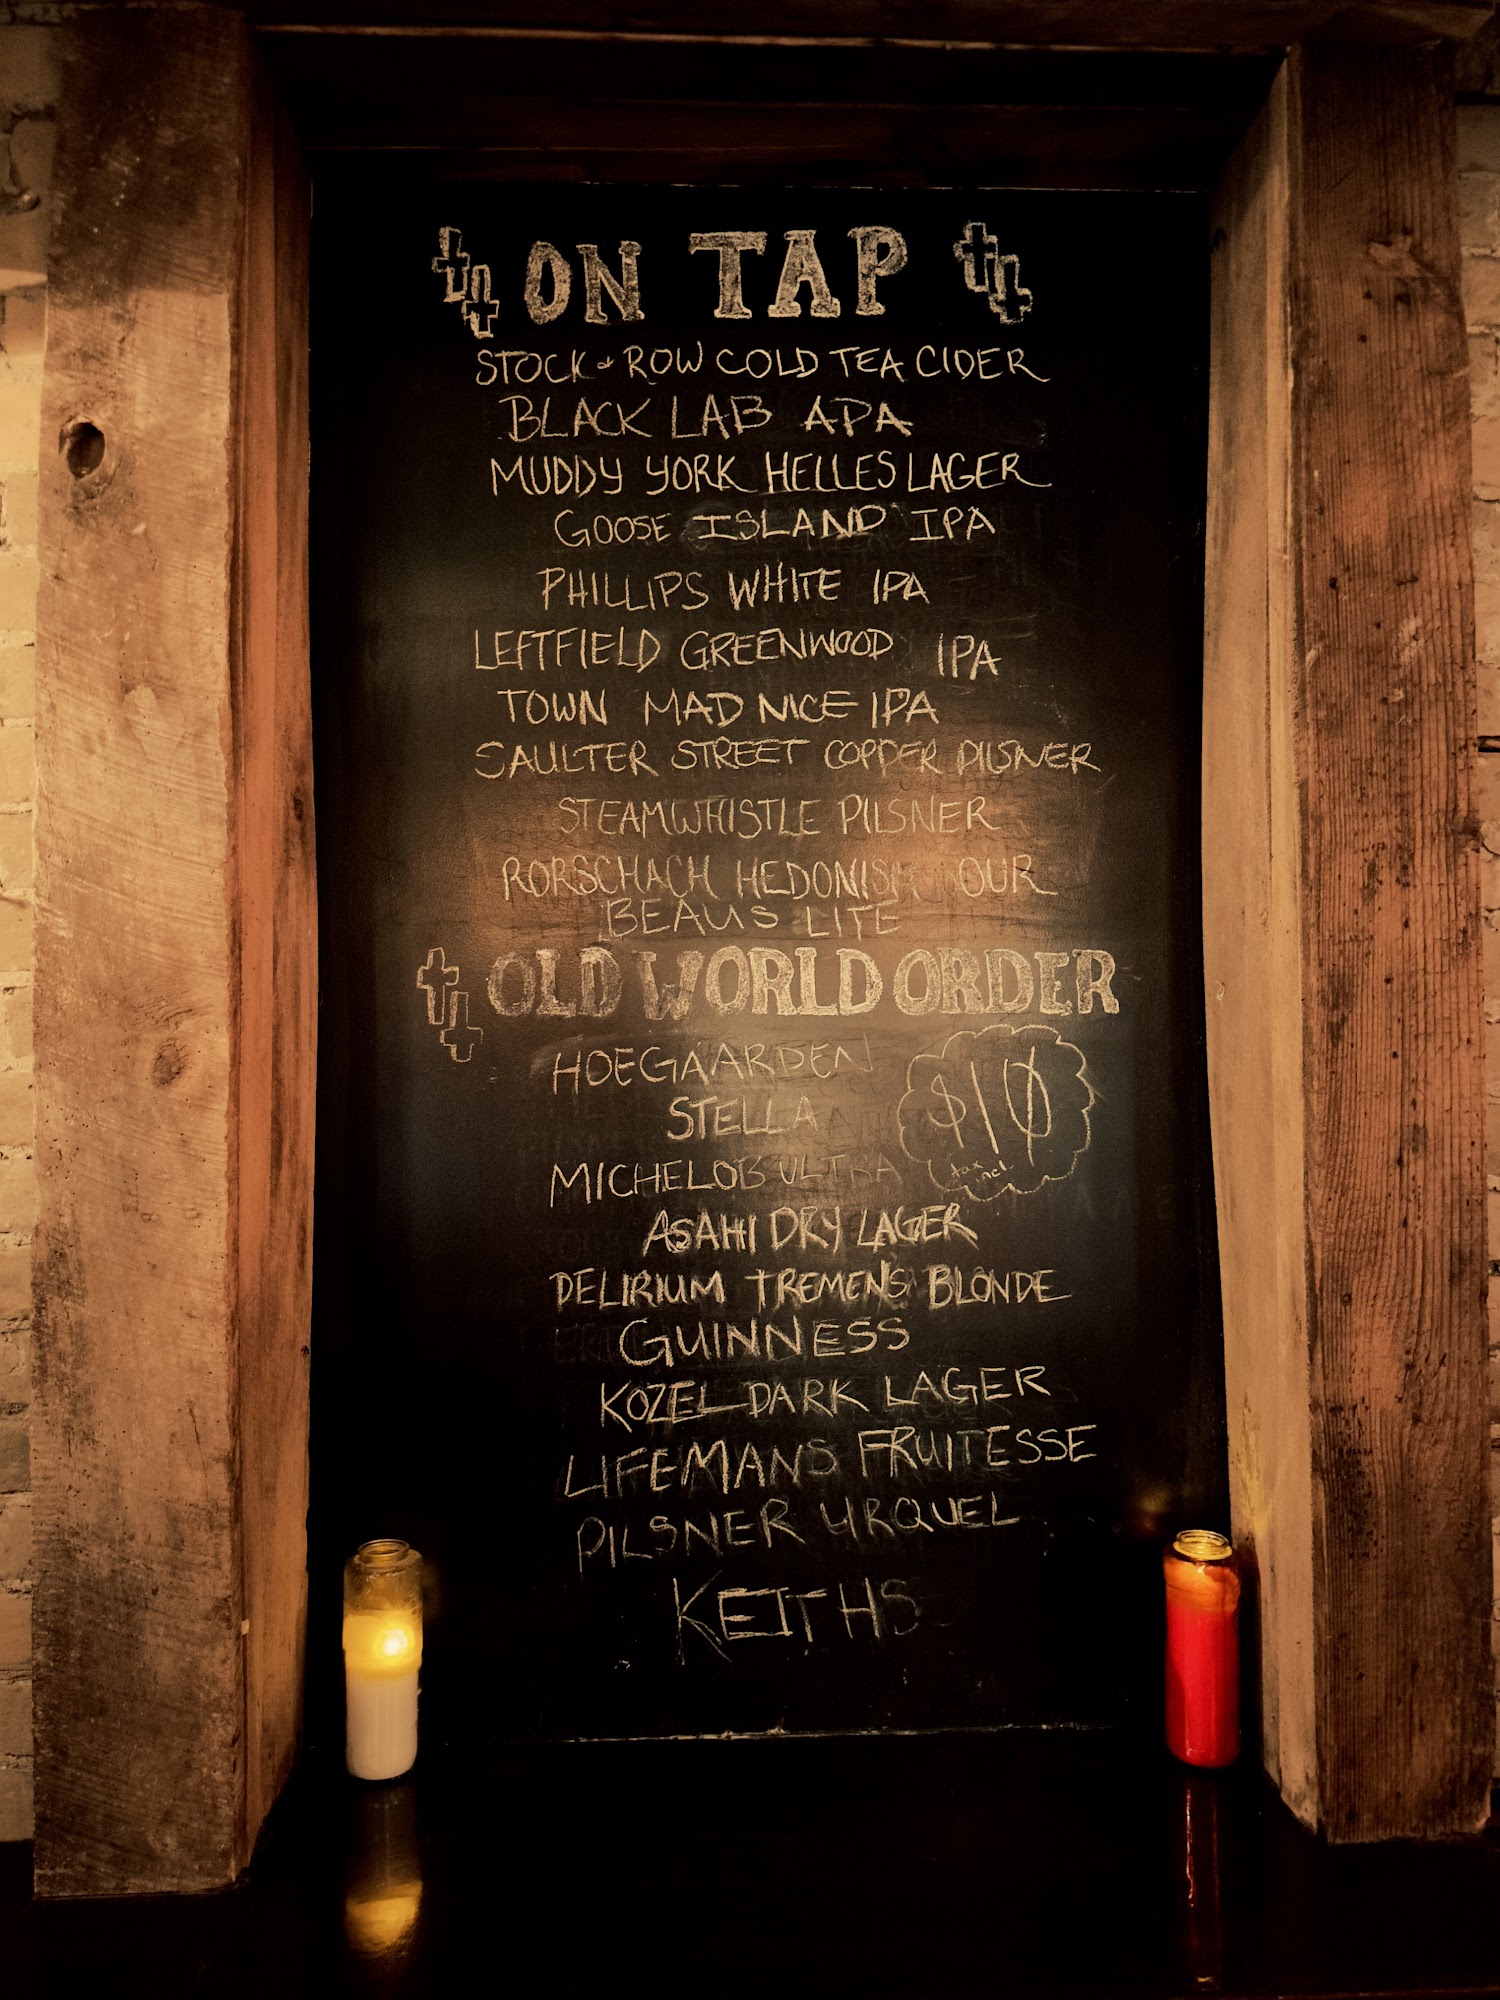 ON TAP
STOCK & ROW COLD TEA CIDER
BLACK LAB APA
MUDDY YORK HELLES LAGER
GOOSE ISLAND IPA
PHILLIPS WHITE IPA
LEFTFIELD GREENWOOD IPA
TOWN MAD NICE IPA
SAULTER STREET COPPER PILSNER
STEAMWHISTLE PILSNER
RORSCHACH HEDONISM OUR
BEAUS LITE
OLD WORLD ORDER
HOEGAARDEN
STELLA
$10
tax incl.
MICHELOB ULTRA
ASAHI DRY LAGER
DELIRIUM TREMENS BLONDE
GUINNESS
KOZEL DARK LAGER
LIFEMANS FRUITESSE
PILSNER URQUEL
KEITHS